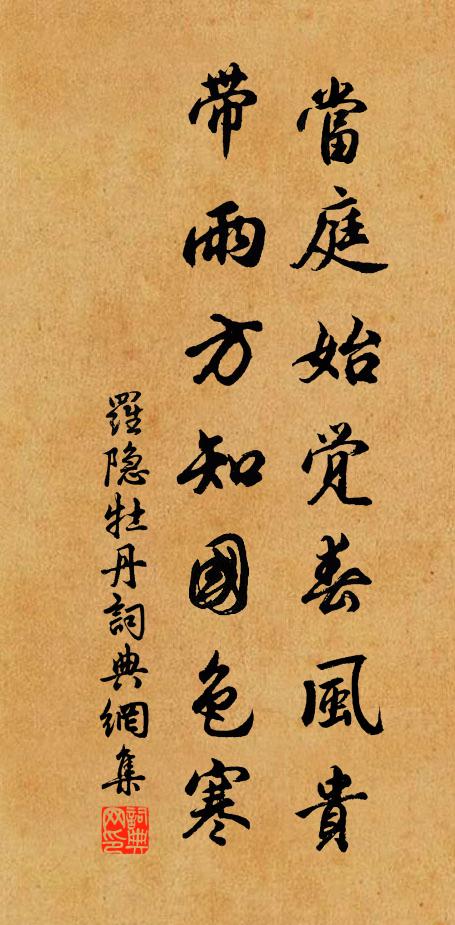 當庭始觉春風貴
带雨方知國色寒
羅隐牡丹詞典網集
詞典
网印